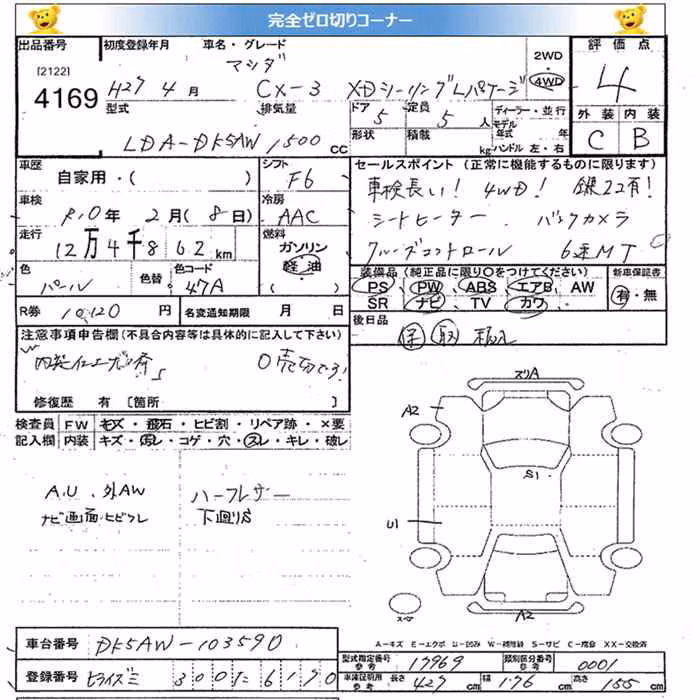 完全ゼロ切りコーナー
出品番号 初度登録年月 車名・グレード 2WD 評価点
[2122] マツダ 4WD
4169 H27 年 4 月 CX-3 XDツーリングLパッケージ 4
型式 排気量 ドア 5 定員 5 人 ディーラー・並行 外装 内装
モデル年式 年
LDA-DK5AW 1500 cc 形状 積載 kg ハンドル 左・右 C B
車歴 シフト セールスポイント (正常に機能するものに限ります)
自家用・( ) F6 車検長い! 4WD! 録22有!
車検 冷房
R10年 2月(8日) AAC シートヒーター バックカメラ
走行 燃料
12万4千862km ガソリン クルーズコントロール 6速MT
軽油
色 色替 色コード 装備品 (純正品に限り○をつけてください) 新車保証書
パール 47A ( ) PS PW ABS エアB AW 有・無
R券 10,120 円 名変通知期限 月 日 SR ナビ TV カワ
後日品
注意事項申告欄(不具合内容等は具体的に記入して下さい) 保 取
0売切です!
修復歴 有 [箇所 ]
検査員 FW キズ・飛石・ヒビ割・リペア跡・×要
記入欄 内装 キズ・汚レ・コゲ・穴・スレ・キレ・破レ
スリA
A2
S1
A.U、外AW ハーフレザー
ナビ画面ヒビワレ 下廻りS
U1
A2
A-キズ E-エクボ U-凹み W-補修跡 S-サビ C-腐食 XX-交換済
車台番号 DK5AW-103590
型式指定番号 参考 17969 類別区分番号 参考 0001
登録番号 300 6190
車庫証明用 参考 長さ 427 cm 幅 176 cm 高さ 155 cm